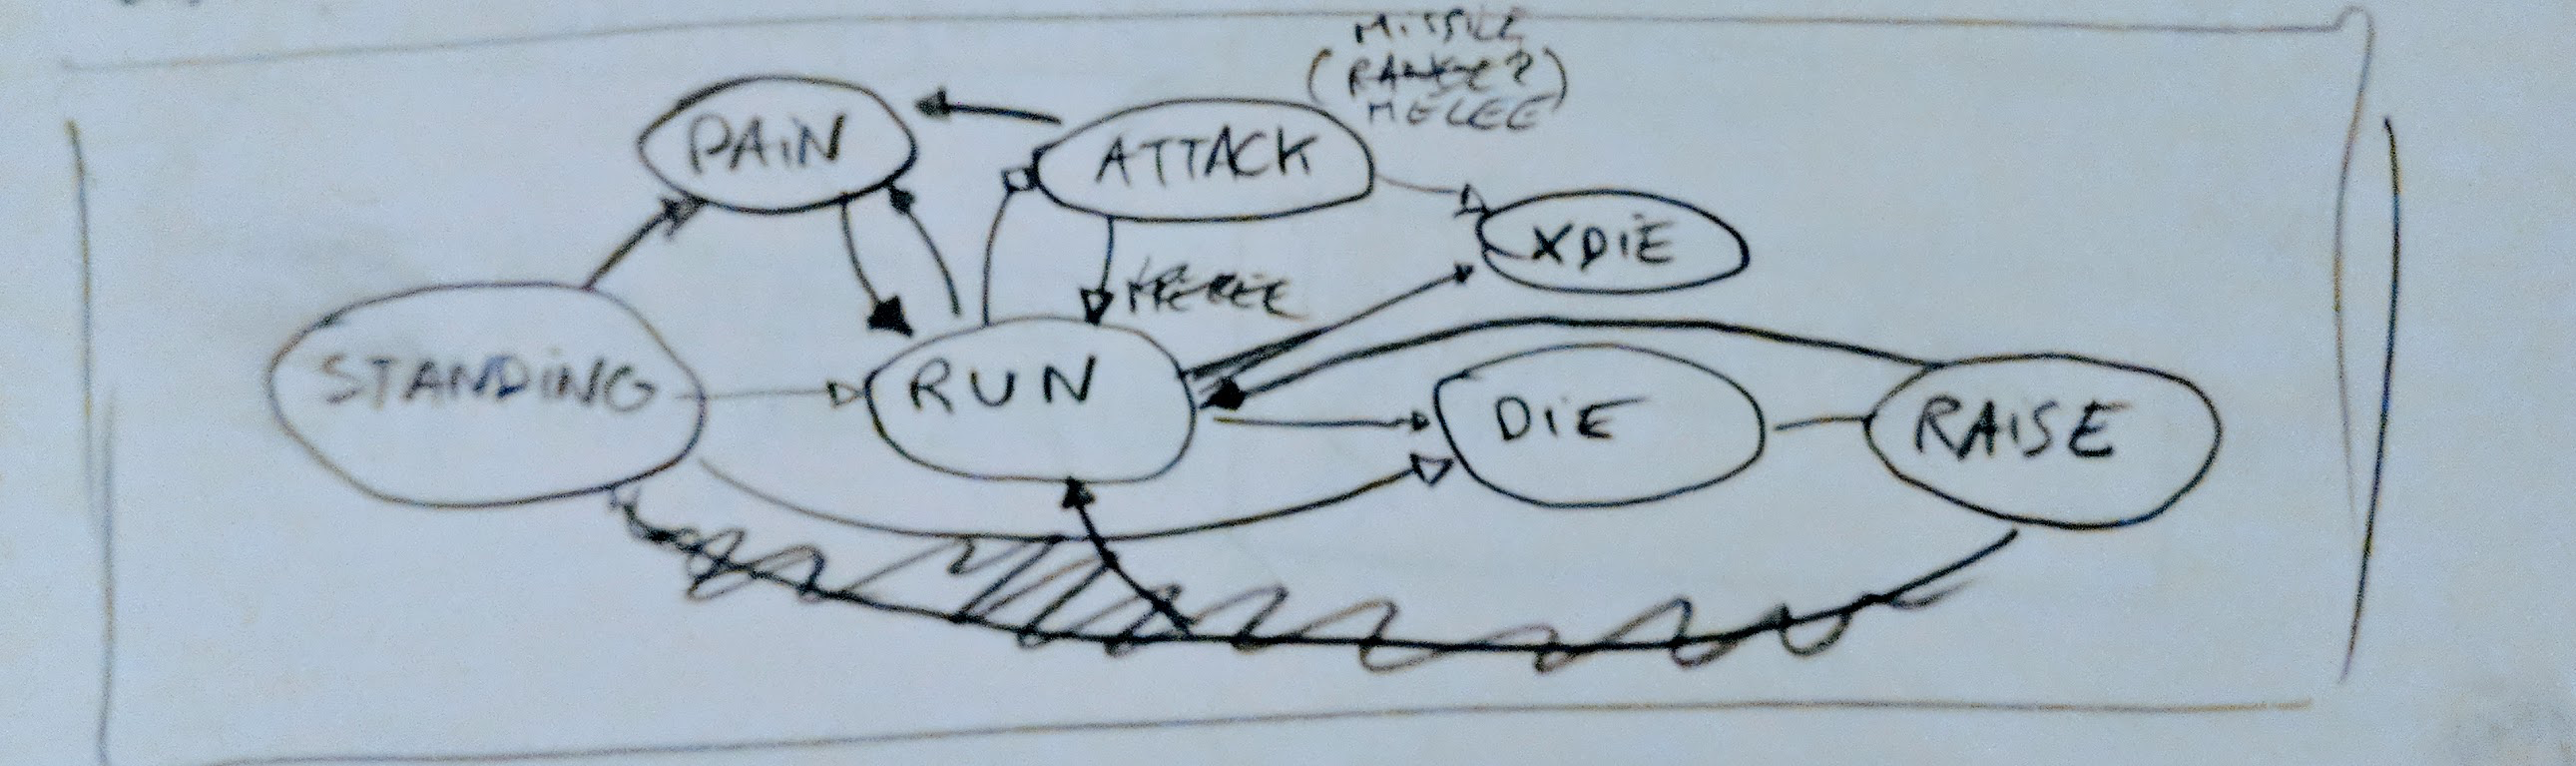 MISSILE
(RANGE?)
MELEE
PAIN
ATTACK
XDIE
STANDING
RUN
DIE
RAISE